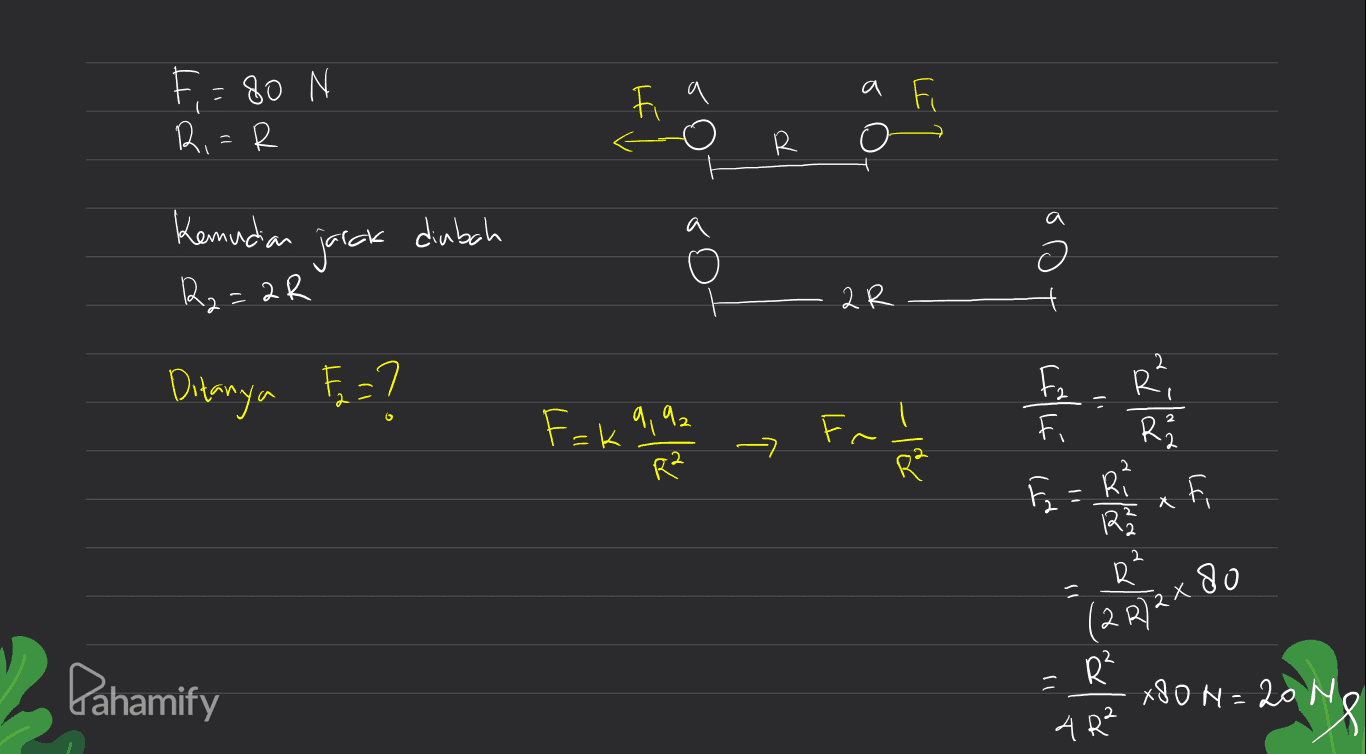 F₁ = 80 N
R₁ = R
F₁ q q F₁
R
Kemudian jarak diubah
R₂ = 2R
q q
2R
Ditanya F₂ = ?
F = k q₁q₂/R² → F ~ 1/R²
F₂/F₁ = R₁²/R₂²
F₂ = R₁²/R₂² x F₁
= R²/(2R)² x 80
= R²/4R² x80 N = 20 N
Pahamify